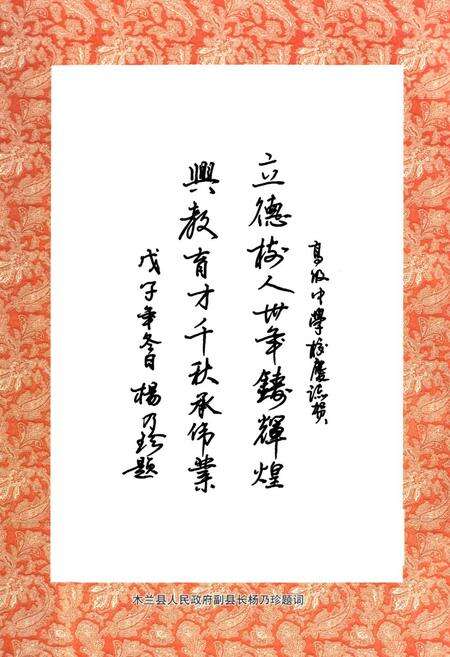 高级中學校慶
立德树人卅年鑄輝煌
興教育才千秋承伟業
戊子年冬日 楊乃珍題
木兰县人民政府副县长杨乃珍题词